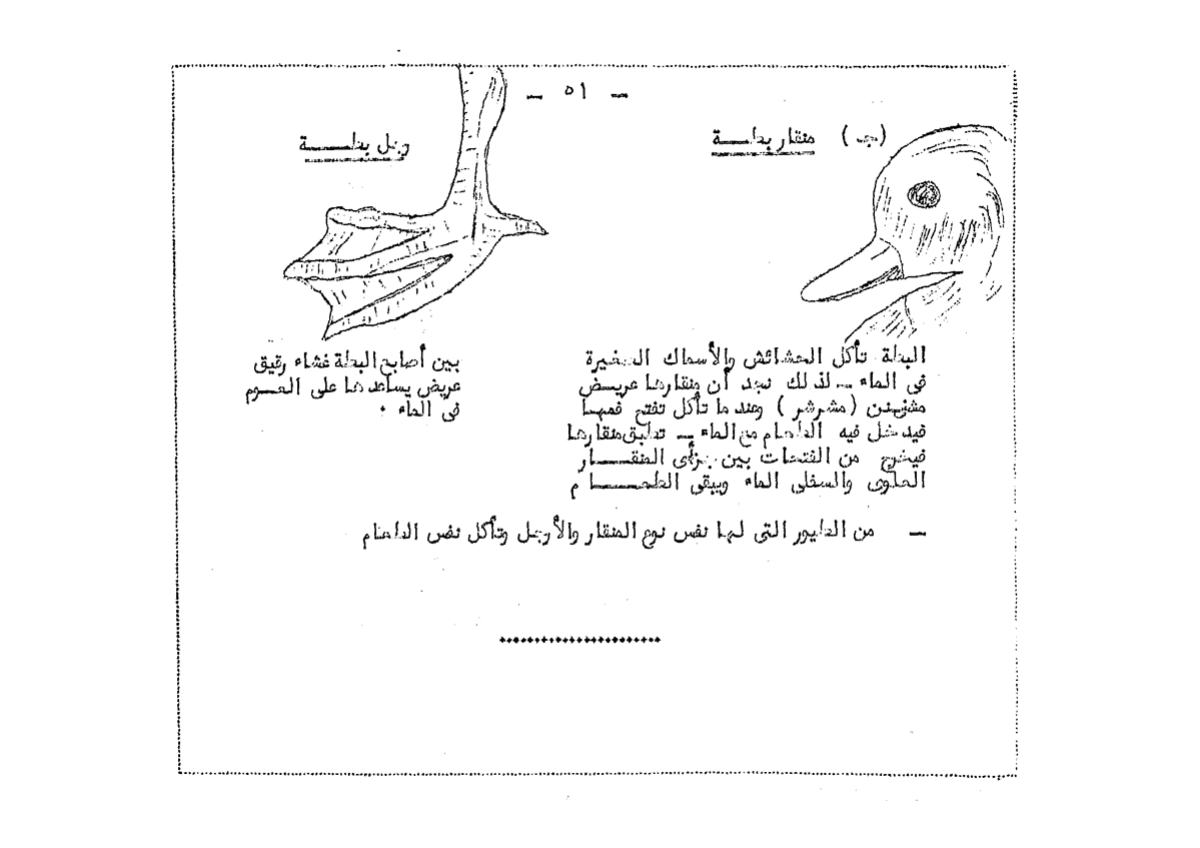 - ٥١ -
(جـ) منقار بطـــة
رجل بطـــــة
البطة تأكل الحشائش والأسماك الصغيرة
فى الماء - لذلك نجد أن منقارها عريــض
(مشرشر) وعندما تأكل تفتح فمهــا
فيدخل فيه الطعام مع الماء - تطبق منقارها
فيخرج من الفتحات بين جزأى المنقـــــار
العلوى والسفلى الماء ويبقى الطعـــــام
بين أصابع البطة غشاء رقيق
عريض يساعدها على العــوم
فى الماء .
- من الطيور التى لها نفس نوع المنقار والأرجل وتأكل نفس الطعام